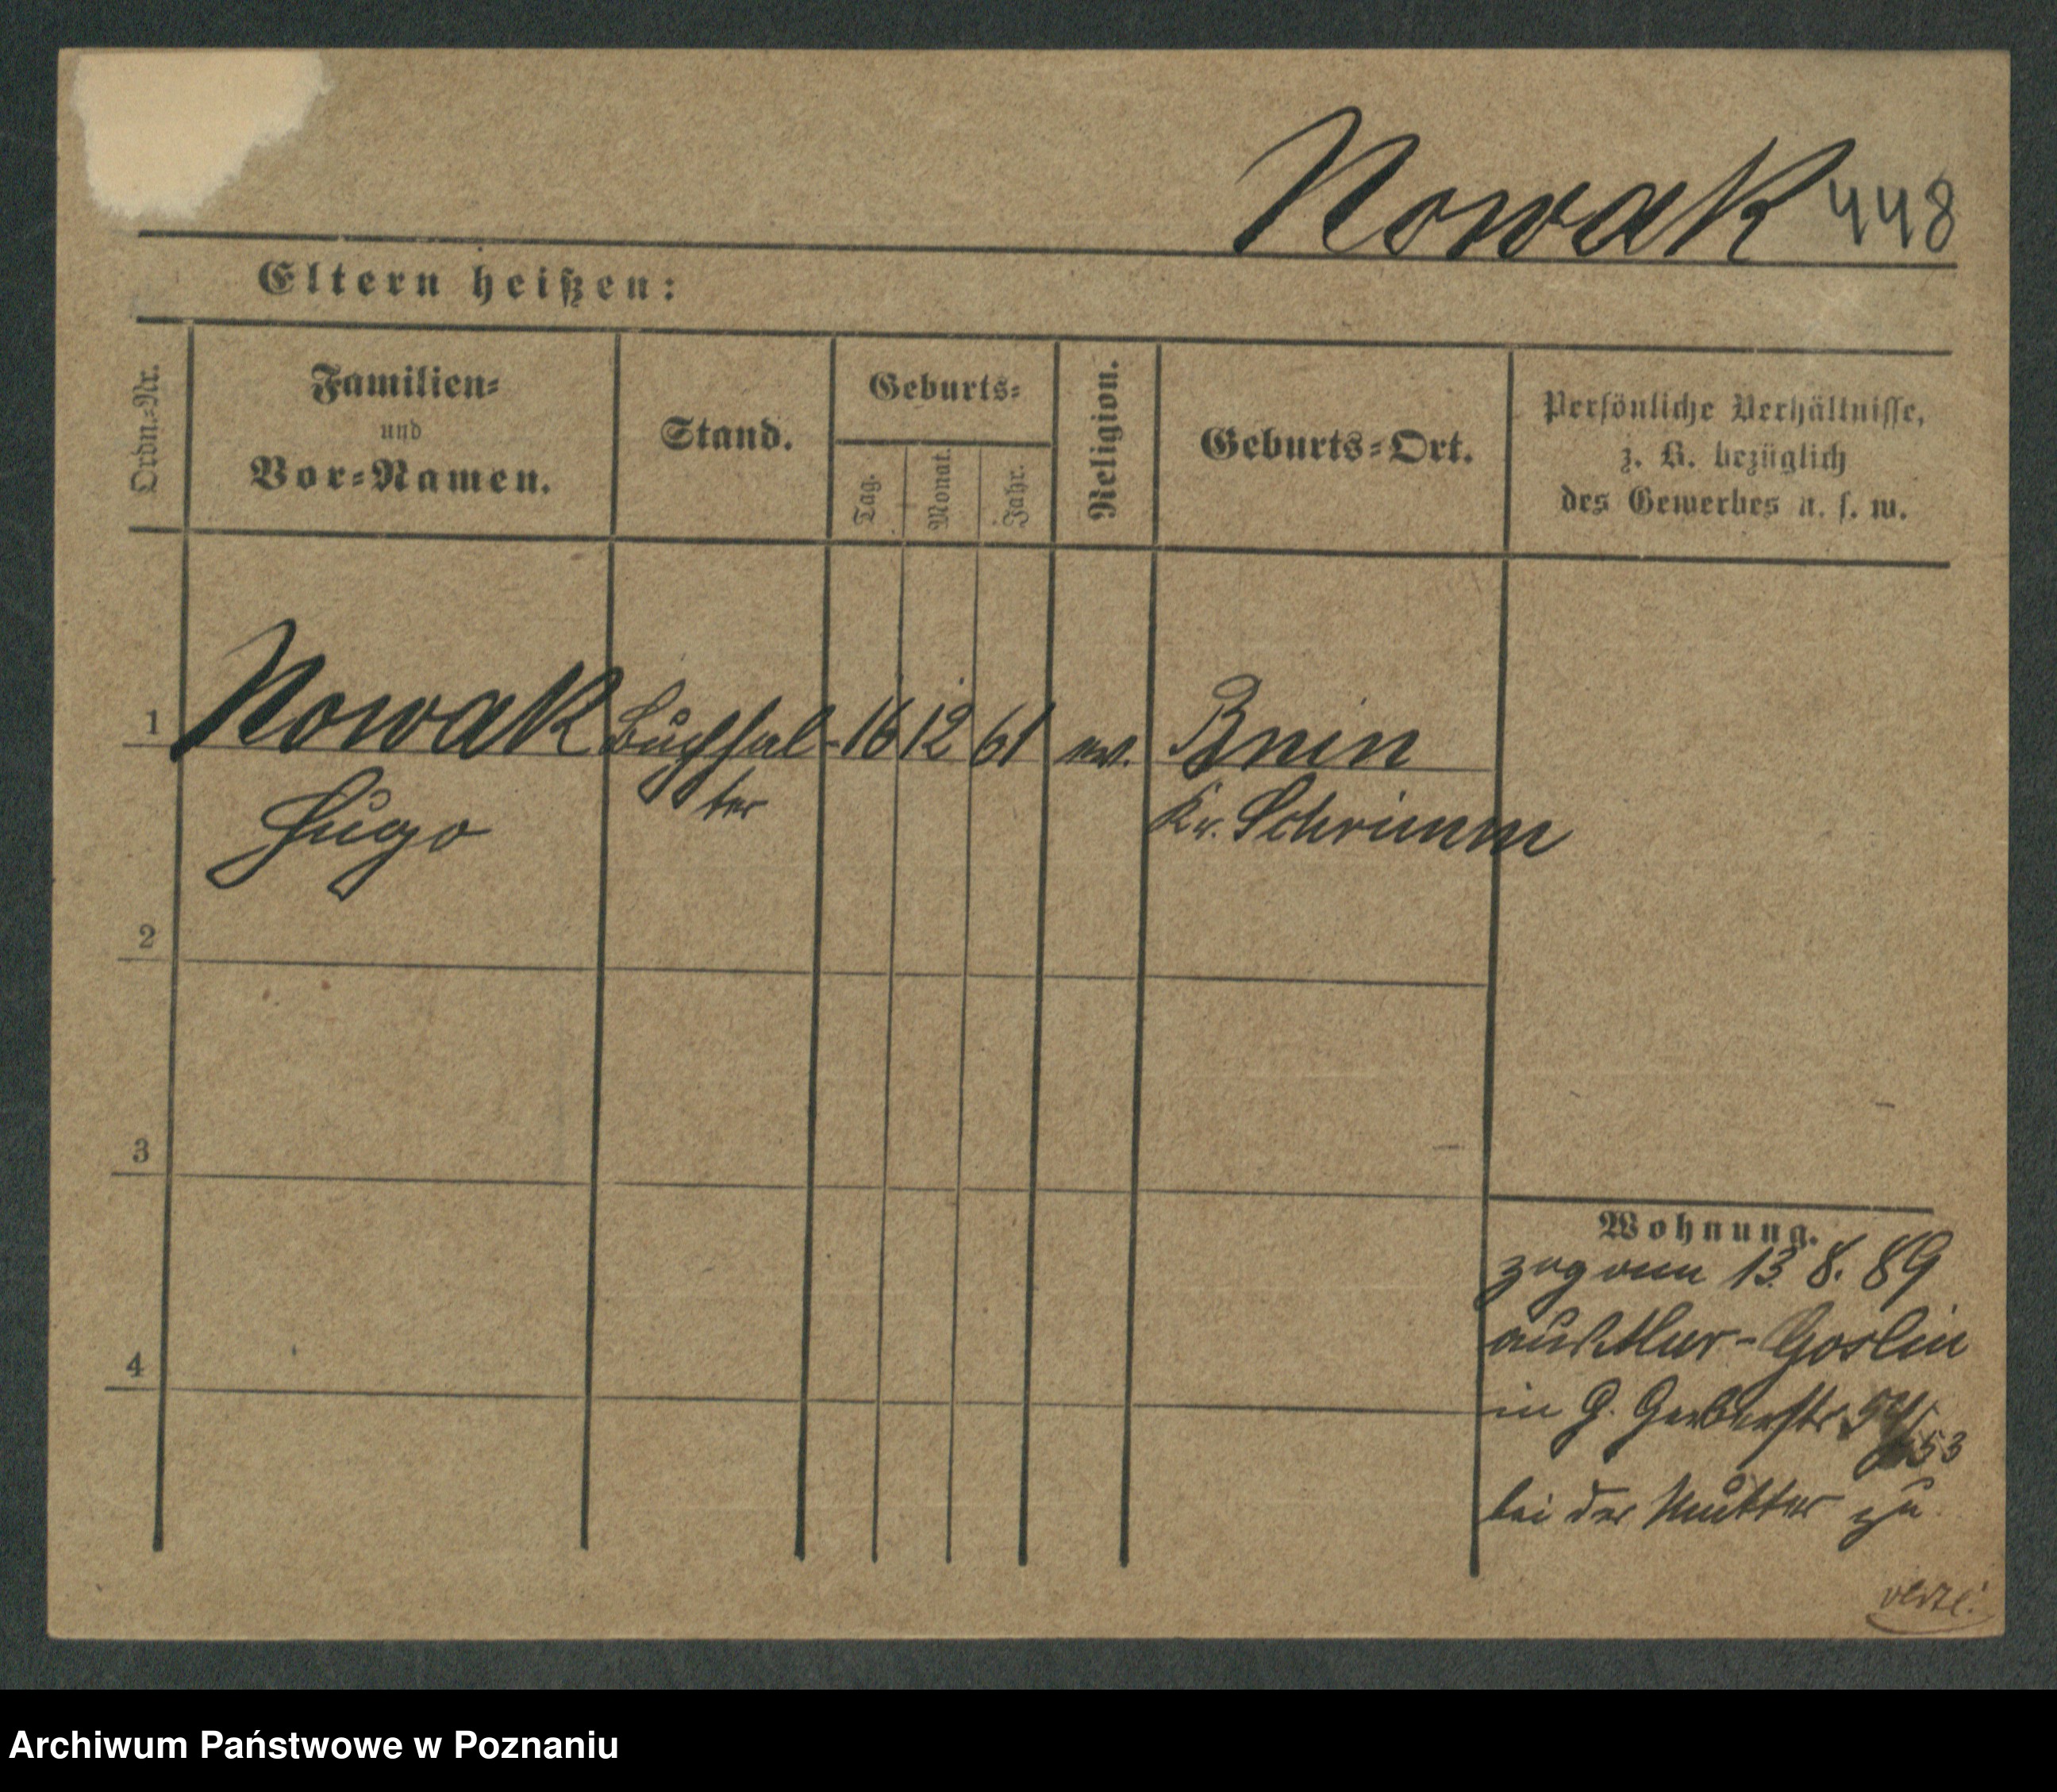 Nowak 448
Eltern heißen:
Ordn.=Nr.
Familien=
und
Vor=Namen.
Stand.
Geburts=
Tag.
Monat.
Jahr.
Religion.
Geburts=Ort.
Persönliche Verhältnisse,
z. B. bezüglich
des Gewerbes u. s. w.
1 Nowak Buchhal- 16 12 61 ev. Bnin
Hugo ter Kr. Schrimm
2
3
4
Wohnung.
zog am 13. 8. 89
aus Mur-Goslin
in G. Gerberstr 54/53
bei der Mutter zu.
verzi.
Archiwum Państwowe w Poznaniu